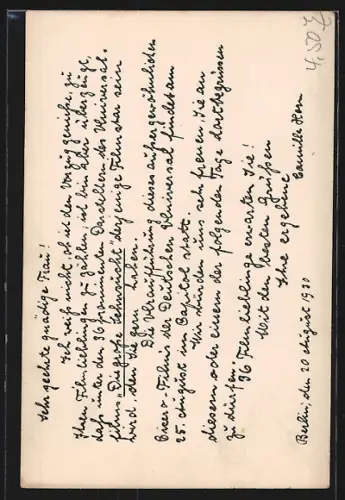 Sehr geehrte gnädige Frau!
Ich weiß nicht, ob ich den Vorzug genieße, zu
Ihren Filmlieblingen zu zählen, ich bin aber überzeugt,
daß unter den 36 prominenten Darstellern des Universal-
films „Die große Sehnsucht" derjenige Filmstar sein
wird, den Sie gern haben.
Die Uraufführung dieses außergewöhnlichen
Films der Deutschen Universal findet am
25. August im Capitol statt.
Wir würden uns sehr freuen, Sie an
diesem oder einem der folgenden Tage dort begrüssen
zu dürfen.
36 Filmlieblinge erwarten Sie!
Mit den besten Grüßen
Ihre ergebene
Camilla Horn
Berlin, den 20 August 1930
4.50